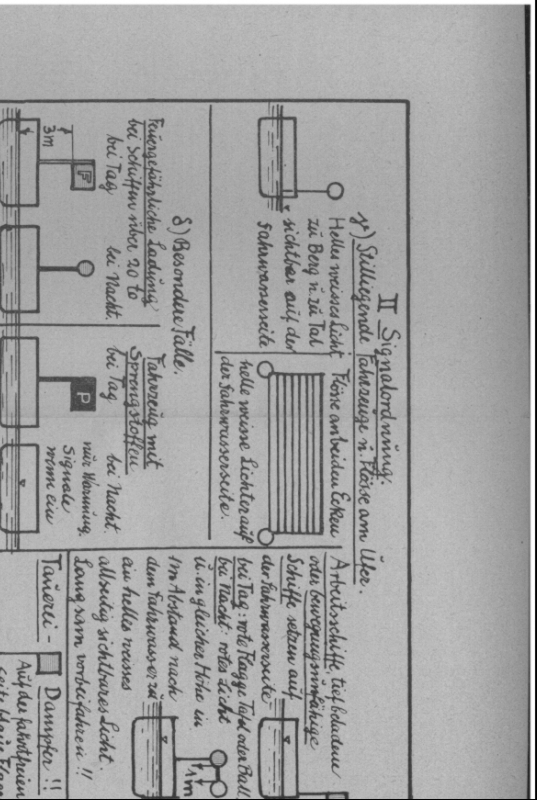 II Signalordnung.
γ) Stilliegende Fahrzeuge u. Flösse am Ufer.
Helles weisses Licht
zu Berg u. zu Tal
sichtbar auf der
Fahrwasserseite
Flösse an beiden Ecken
helle weisse Lichter auf
der Fahrwasserseite.
δ) Besondere Fälle.
Feuergefährliche Ladung
bei Schiffen über 20 to
bei Tag
bei Nacht.
3m
F
Fahrzeug mit
Sprengstoffen
bei Tag
bei Nacht.
P
nur Warnung.
Signale
wenn ein
Arbeitsschiffe, tiefbeladene
oder bewegungsunfähige
Schiffe setzen auf
der Fahrwasserseite
bei Tag: rote Flagge Tafel oder Ball
bei Nacht: rotes Licht
u. in gleicher Höhe in
1m Abstand nach
dem Fahrwasser zu
ein helles weisses
allseitig sichtbares Licht.
Langsam vorbeifahren!!
1m
Tauerei-
Dampfer!!
Auf der fahrtfreien